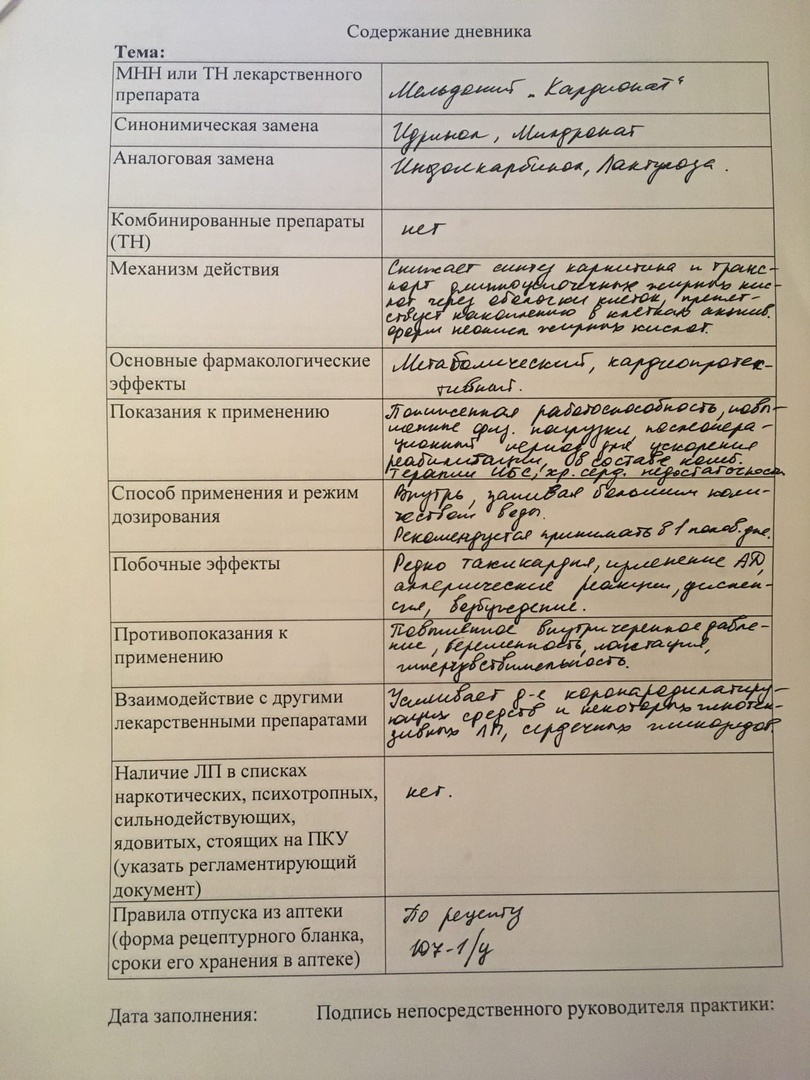 Содержание дневника
Тема:
МНН или ТН лекарственного
препарата
Мельдоний „Кардионат“
Синонимическая замена
Идринол, Милдронат
Аналоговая замена
Индолкарбинол, Лактулоза.
Комбинированные препараты
(ТН)
нет
Механизм действия
Снижает синтез карнитина и транс-
порт длинноцепочечных жирных кис-
лот через оболочки клеток, препят-
ствует накоплению в клетках актив.
форм неокисл жирных кислот.
Основные фармакологические
эффекты
Метаболический, кардиопротек-
тивный.
Показания к применению
Пониженная работоспособность, повы-
шенные физ. нагрузки послеопера-
ционный период для ускорения
реабилитации, в составе комб.
терапии ИБС, хр. серд. недостаточность
Способ применения и режим
дозирования
Внутрь, запивая большим коли-
чеством воды.
Рекомендуется принимать в 1 полов. дня.
Побочные эффекты
Редко тахикардия, изменение АД,
аллергические реакции, диспеп-
сия, возбуждение.
Противопоказания к
применению
Повышенное внутричерепное давле-
ние, беременность, лактация,
гиперчувствительность.
Взаимодействие с другими
лекарственными препаратами
Усиливает д-е коронародилатиру-
ющих средств и некоторых гипотен-
зивных ЛП, сердечных гликозидов.
Наличие ЛП в списках
наркотических, психотропных,
сильнодействующих,
ядовитых, стоящих на ПКУ
(указать регламентирующий
документ)
нет.
Правила отпуска из аптеки
(форма рецептурного бланка,
сроки его хранения в аптеке)
По рецепту
107-1/у
Дата заполнения: Подпись непосредственного руководителя практики: